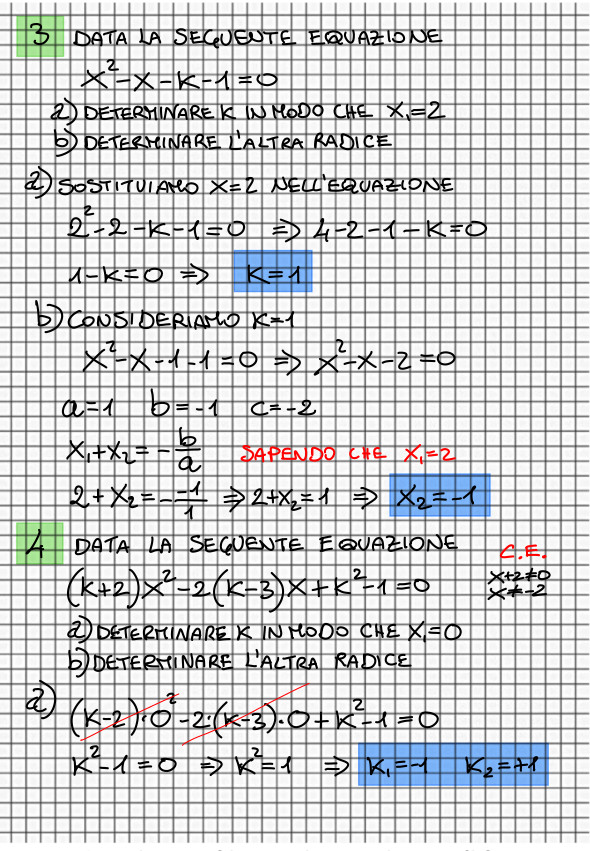 3 DATA LA SEGUENTE EQUAZIONE
x²-x-k-1=0
a) DETERMINARE K IN MODO CHE x₁=2
b) DETERMINARE L'ALTRA RADICE
a) SOSTITUIAMO X=2 NELL'EQUAZIONE
2²-2-k-1=0 ⇒ 4-2-1-k=0
1-k=0 ⇒ k=1
b) CONSIDERIAMO K=1
x²-x-1-1=0 ⇒ x²-x-2=0
a=1 b=-1 c=-2
x₁+x₂=-b/a SAPENDO CHE x₁=2
2+x₂=-(-1)/1 ⇒ 2+x₂=1 ⇒ x₂=-1
4 DATA LA SEGUENTE EQUAZIONE
C.E.
(k+2)x²-2(k-3)x+k²-1=0
x+2≠0
x≠-2
a) DETERMINARE K IN MODO CHE x₁=0
b) DETERMINARE L'ALTRA RADICE
a) (k-2)·0²-2·(k-3)·0+k²-1=0
k²-1=0 ⇒ k²=1 ⇒ k₁=-1 k₂=+1